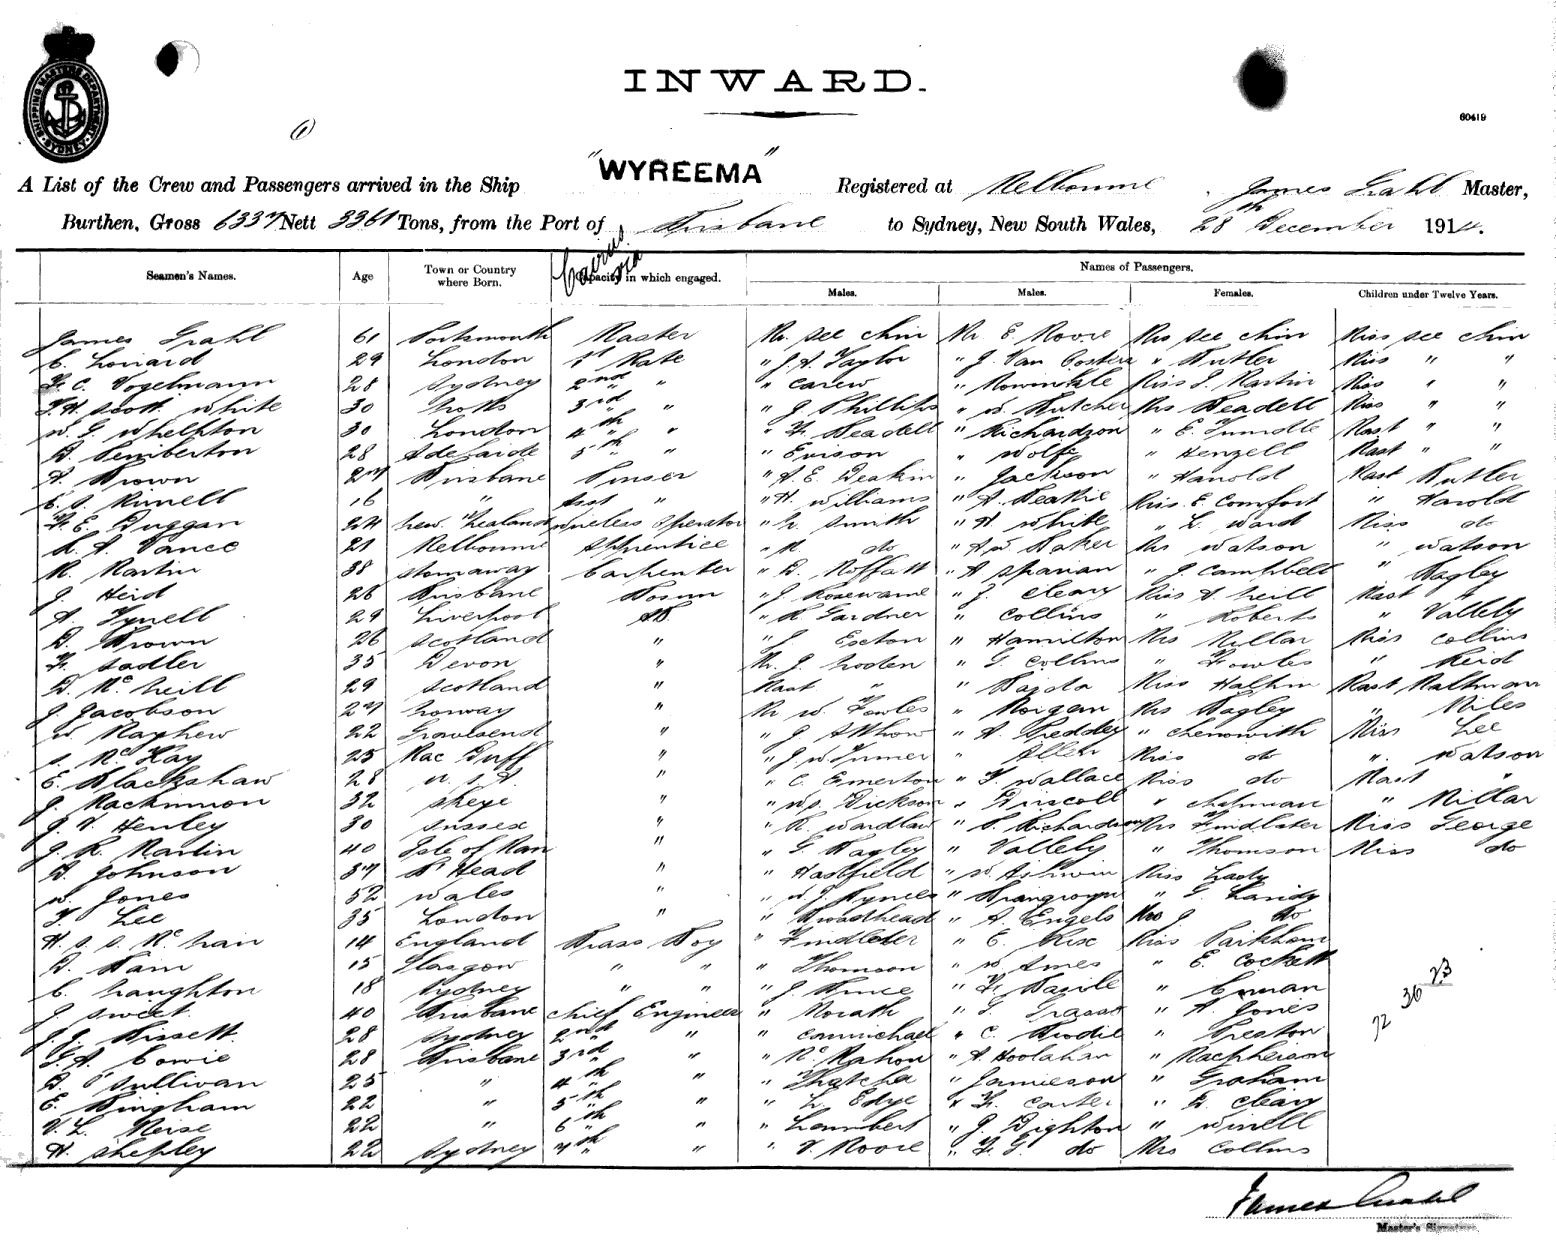 INWARD.
60419
(1)
SHIPPING MASTERS DEPARTMENT SYDNEY
A List of the Crew and Passengers arrived in the Ship "WYREEMA" Registered at Melbourne, James Grahl Master,
Burthen, Gross 6337 Nett 3361 Tons, from the Port of Brisbane to Sydney, New South Wales, 28th December 1914.
Cairns via
Names of Passengers.
Seamen's Names. Age Town or Country where Born. Capacity in which engaged. Males. Males. Females. Children under Twelve Years.
James Grahl 61 Portsmouth Master Mr. See Chin Mr. E. Moore Mrs See Chin Miss See Chin
C. Leonard 29 London 1st Mate " J. A. Taylor " J. Van " Butler Miss " "
F. C. Vogelmann 28 Sydney 2nd " " Carew " Miss S. Martin Miss " "
F. H. Scott White 30 Notts 3rd " " J. Phillips " W. Butcher Mrs Beadell Miss " "
W. G. Whelpton 30 London 4th " " F. Beadell " Richardson " E. Tunstle Mast " "
D. Pemberton 28 Adelaide 5th " " Evison " Wolfe " Henzell Mast " "
A. Brown 27 Brisbane Purser " A. E. Deakin " Jackson " Harold Mast Butler
E. J. Rinell 16 " Asst " " H. Williams " A. Beattie Miss E. Comfort " Harold
F. E. Duggan 24 New Zealand Wireless Operator " G. Smith " H. White " L. Ward Miss do
L. A. Vance 21 Melbourne Apprentice " M do " A W Baker Mrs Watson " Watson
M. Martin 38 Stornaway Carpenter " D. Moffatt " A Spanan " J. Campbell " Bagley
J. Heid 26 Brisbane Bosun " J. Rosewarne " J. Cleary Miss A. Neill Mast "
A. Tynell 29 Liverpool AB " R. Gardner " Collins " Roberts " Vallely
D. Brown 26 Scotland " " J. Exton " Hamilton Mrs Millar Miss Collins
F. Sadler 35 Devon " Mr. J. Noden " G. Collins " Fowles " Reid
D. McNeill 29 Scotland " Mast " " Miss Mast Maltman
J. Jacobson 27 Norway " Mr W. Fowles " Morgan Mrs Bagley " Miles
W. Mayhew 22 Gravesend " " J. " A. Preddey " Chenowith Miss Lee
S. McKay 25 MacDuff " " J. W. Turner " Allen Miss do " Watson
E. Blackshaw 28 U.S.A " " C. Emerton " F. Wallace Miss do Mast "
J. Mackinnon 32 Skye " " W. J. Dickson " Driscoll " Chapman " Millar
J. V. Henley 30 Sussex " " R. Wardlaw " S. Richardson Mrs Findlater Miss George
J. R. Martin 40 Isle of Man " " G. Bagley " Vallely " Thomson Miss do
D. Johnson 37 " " Hadfield " W. Ashwin Miss Lady
W. Jones 52 Wales " " W. J. " " G.
T. Lee 35 London " " Broadhead " A. Engels Mrs J do
H. S. S. McNair 14 England Brass Boy " Findlater " C. Rix Miss Parkham
D. Bain 15 Glasgow " " " Thomson " W. Ames " E. Cockett
C. Naughton 18 Sydney " " " J. Bruce " F. Basile "
J. Sweet 40 Brisbane Chief Engineer " Morath " G. Grasso " A. Jones
J. J. Bissett 28 Sydney 2nd " " Carmichael " C. Brodie " Preston
G. A. Cowie 28 Brisbane 3rd " " McMahon " A. Hoolahan " Macpherson
D. O'Sullivan 25 " 4th " " Thatcher " Jamieson " Graham
E. Bingham 22 " 5th " " L. Edye " F. Carter " D. Cleary
V. L. Reise 22 " 6th " " Lambert " J. Dighton " Winell
H. Shepley 22 Sydney 7th " " V. Moore " F. G. do Mrs Collins
72 36 23
James Grahl
Master's Signature.